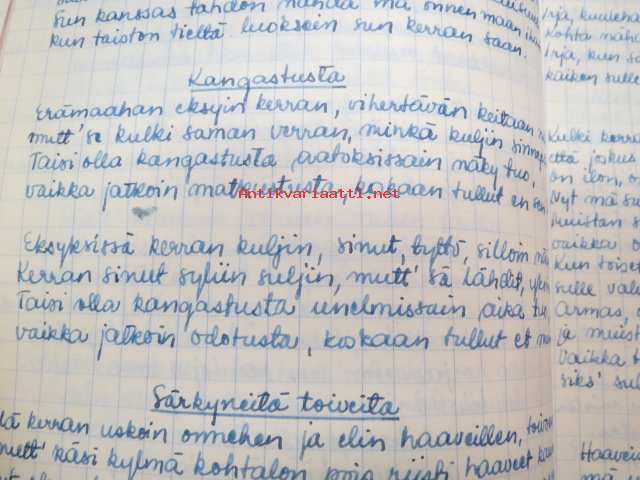 sun kanssas tahdon nähdä mä onnen maan
kun taiston tieltä luoksein sun kerran saan.
Kangastusta
Erämaahan eksyin kerran, vihertävän keitaan
mutt' se kulki saman verran, minkä kuljin sinne
Taisi olla kangastusta aatoksissain näky tuo,
vaikka jatkoin matkustusta, kokaan tullut en sen
Antikvariaatti.net
Eksyksissä kerran kuljin, sinut, tyttö, silloin
Kerran sinut syliin suljin, mutt' sä lähdit,
Taisi olla kangastusta unelmissain aika
vaikka jatkoin odotusta, koskaan tullut et
Särkyneitä toiveita
kerran uskoin onnehen ja elin haaveillen,
mutt' käsi kylmä kohtalon pois riisti haaveet
Irja,
Kohta
Irja, kun
kaiken sulle
Kulki
että joskus
on ilon,
Nyt mä
muistan
vaikka
Kun
sulle
armas,
ja muist
Vaikka
siks'
Haavei